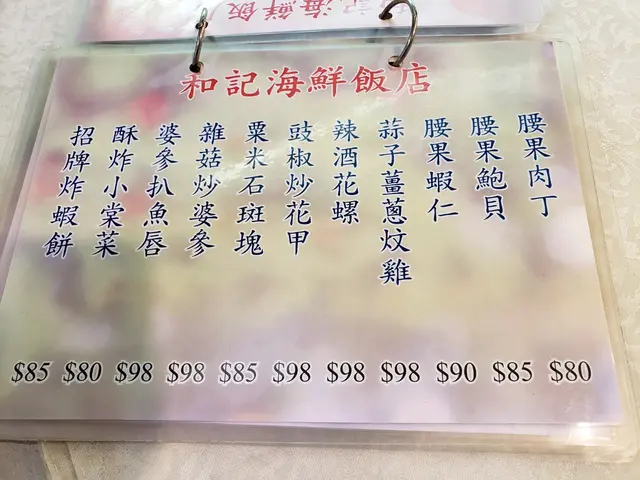 和記海鮮飯店
腰果肉丁
腰果鮑貝
腰果蝦仁
蒜子薑蔥炆雞
辣酒花螺
豉椒炒花甲
粟米石斑塊
雜菇炒婆參
婆參扒魚唇
酥炸小棠菜
招牌炸蝦餅
$85 $80 $98 $98 $85 $98 $98 $98 $90 $85 $80